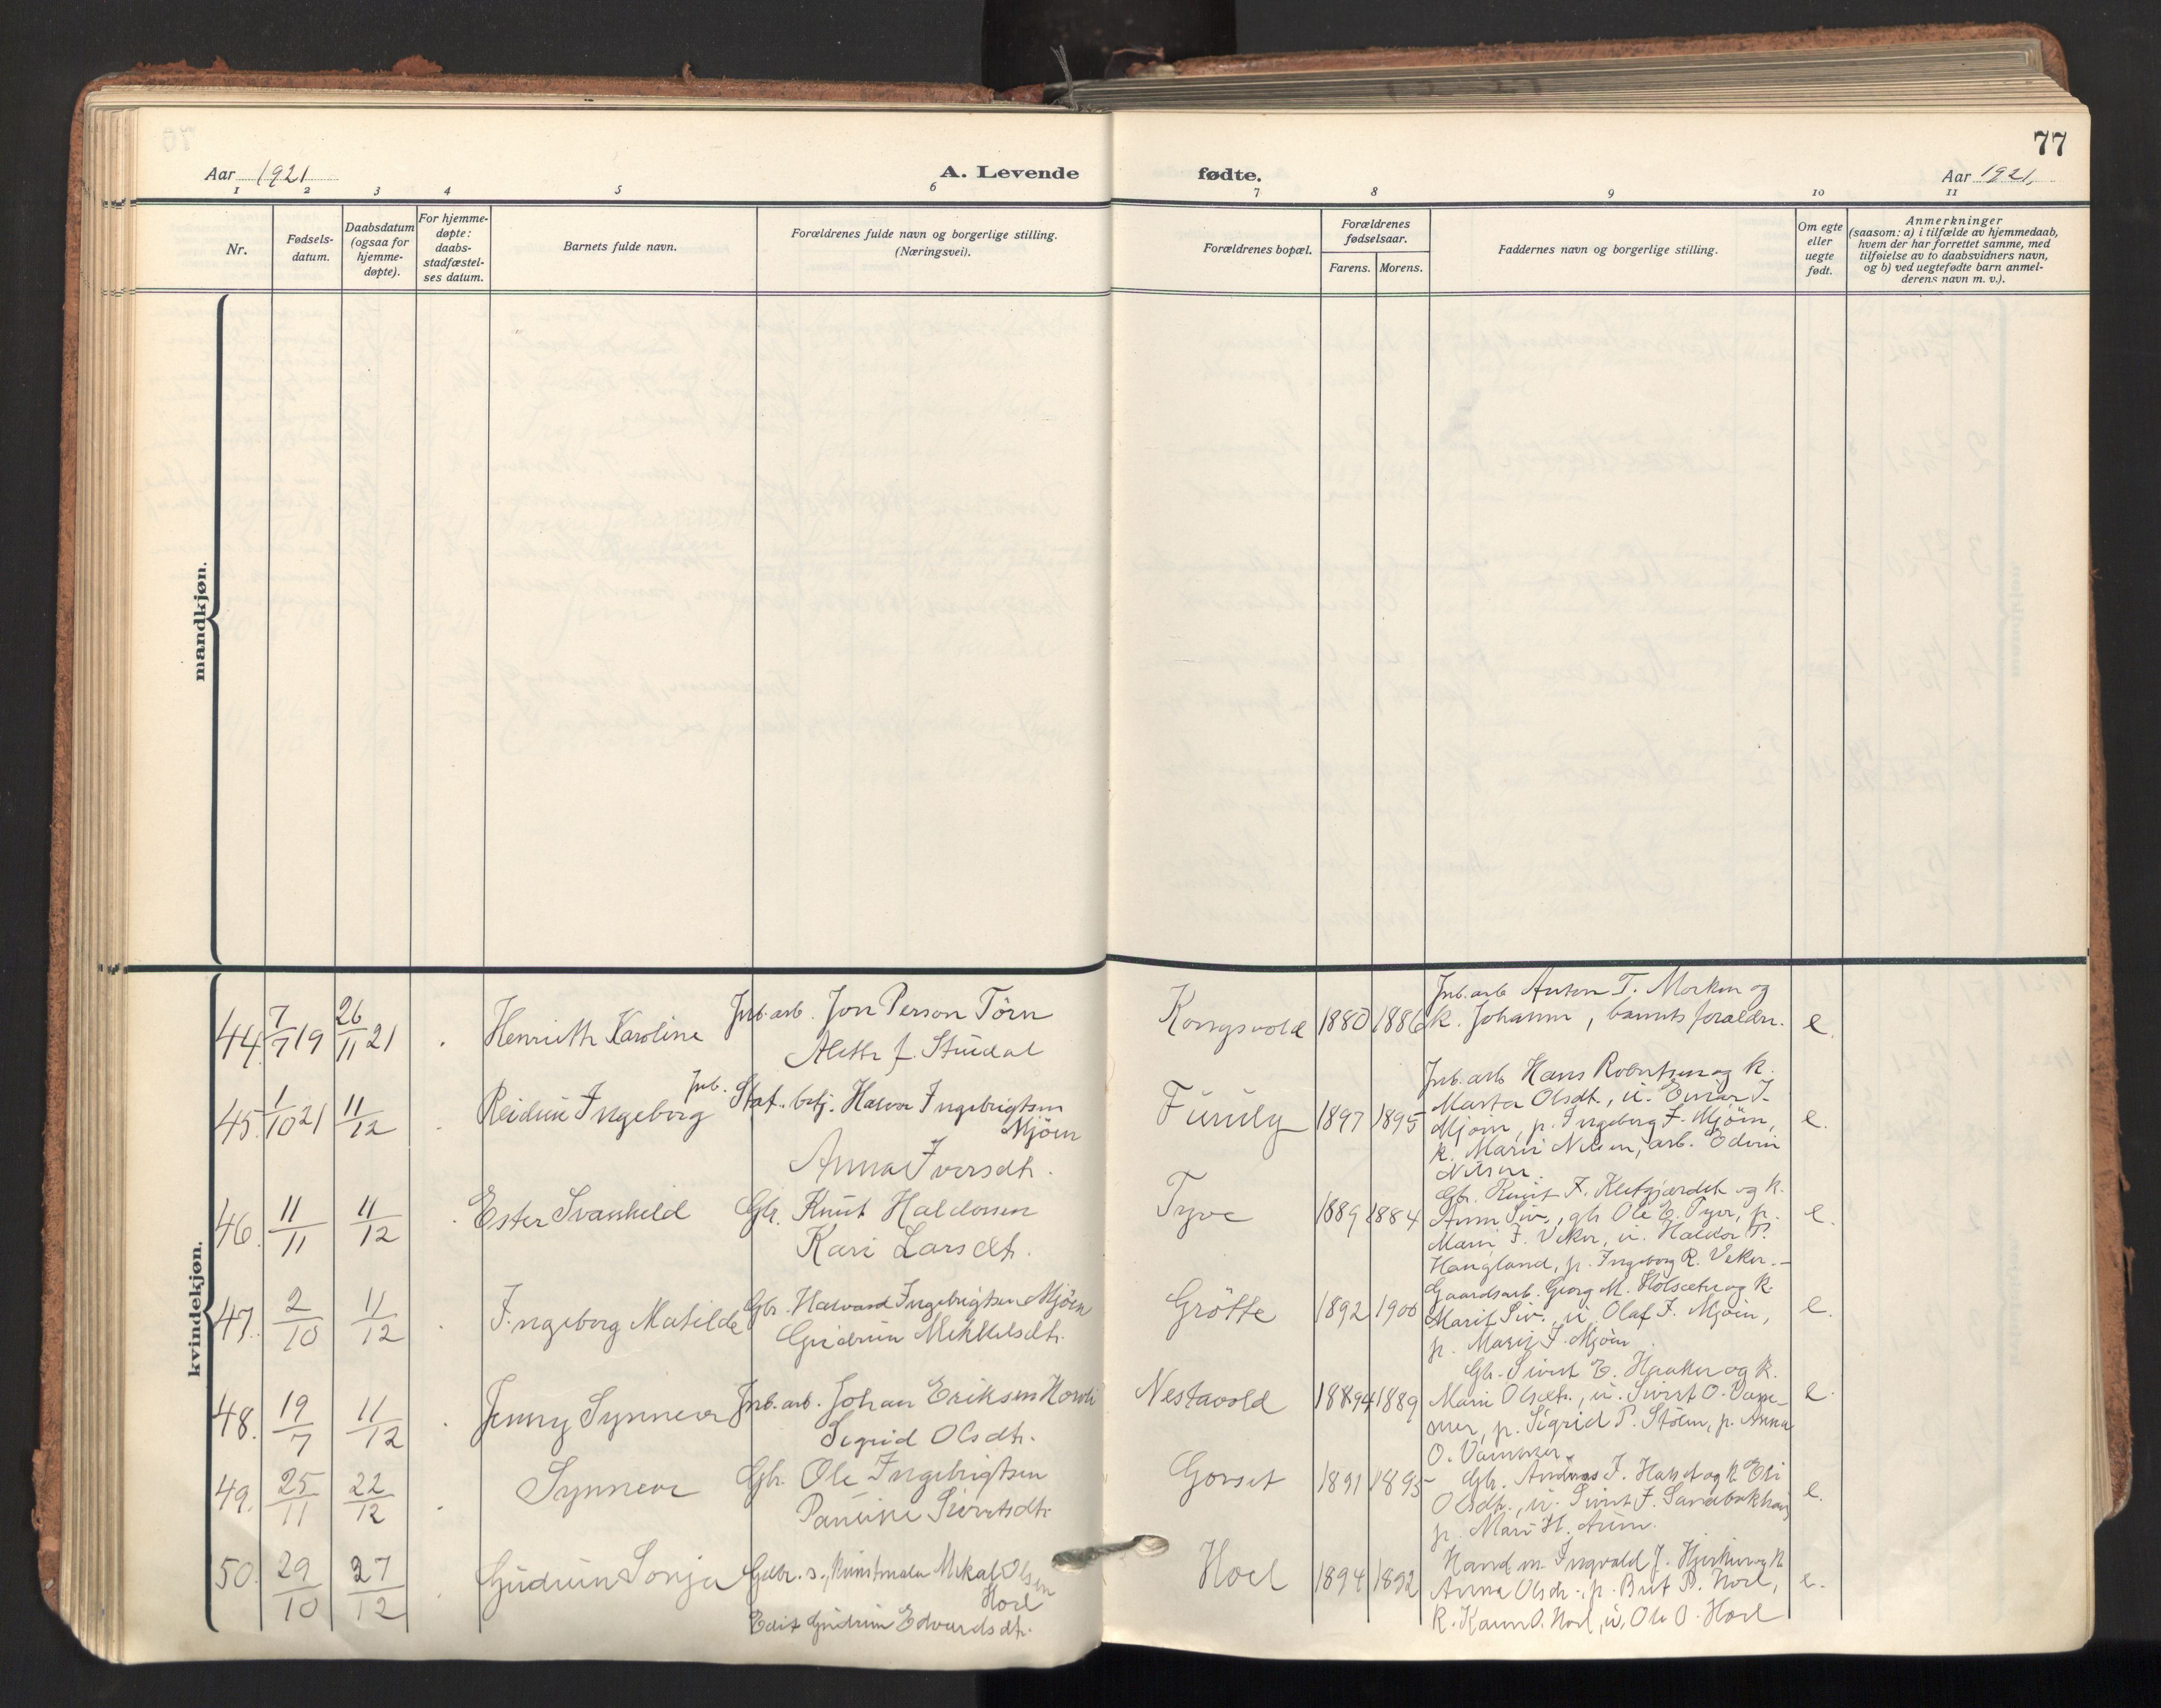 77
Aar 1921
A. Levende fødte.
Aar 1921.
1 2 3 4 5 6 7 8 9 10 11
Nr.
Fødsels-
datum.
Daabsdatum
(ogsaa for
hjemme-
døpte).
For hjemme-
døpte:
daabs-
stadfæstel-
ses datum.
Barnets fulde navn.
Forældrenes fulde navn og borgerlige stilling.
(Næringsvei).
Forældrenes bopæl.
Forældrenes
fødselsaar.
Farens. Morens.
Faddernes navn og borgerlige stilling.
Om egte
eller
uegte
født.
Anmerkninger
(saasom: a) i tilfælde av hjemmedaab,
hvem der har forrettet samme, med
tilføielse av to daabsvidners navn,
og b) ved uegtefødte barn anmel-
derens navn m. v.).
mandkjøn.
kvindekjøn.
44. 7/7 19 26/11 21
Henriette Karoline
Jnb. arb. Jon Person Törn
Alette f. Stuedal
Kongsvold 1880 1886
Jnb. arb. Anton T. Morken og
k. Johanne, barnets forældre.
e.
45. 1/10 21 11/12
Reidun Ingeborg
Jnb. Stat. betj. Halvor Ingebrigtsen
Mjöen
Anna Iversdtr.
Furuly 1897 1895
Jnb. arb. Hans Robertsen og k.
Marta Olsdt., u. Einar I.
Mjöen, p. Ingeborg I. Mjöen,
k. Marie Nilsen, arb. Edvin
Nilsen.
e.
46. 11/11 11/12
Ester Svanhild
Gbr. Knut Haldorsen
Kari Larsdtr.
Tyve 1889 1884
Gbr. Knut F. Kletgjerdet og k.
Anne Siv., gbr. Ole E. Tyve, p.
Mari I. Veker, u. Haldor P.
Haugland, p. Ingeborg R. Veker.-
e.
47. 2/10 11/12
Ingeborg Matilde
Gbr. Halvard Ingebrigtsen Mjöen
Gudrun Mikkelsdtr.
Grötte 1892 1900
Gaardsarb. Georg M. Holsætre og k.
Marit Siv., u. Olaf I. Mjöen,
p. Marit I. Mjöen.
e.
48. 19/7 11/12
Jenny Synnöve
Jnb. arb. Johan Eriksen Horvli
Sigrid Olsdtr.
Nestavold 1894 1889
Gbr. Sivert E. Haaker og k.
Mari Olsdtr., u. Sivert O. Vam-
mer, p. Sigrid P. Stöen, p. Anna
O. Vammer.
e.
49. 25/11 22/12
Synnöve
Gbr. Ole Ingebrigtsen
Pauline Sivertsdtr.
Gorset 1891 1895
Gbr. Andreas I. Halset og k. Eli
Olsdtr., u. Sivert F. Sandbækhaug
p. Mari H. Aune.
e.
50. 29/10 27/12
Gudrun Sonja
Gdbr. s., kunstmaler Mikal Olsen
Hoel
Edit Gudrun Edvardsdtr.
Hoel 1894 1892
Handm. Ingvald J. Hjerkin og k.
Anne Olsdtr., p. Brit P. Hoel,
k. Karen O. Hoel, u. Ole O. Hoel
e.